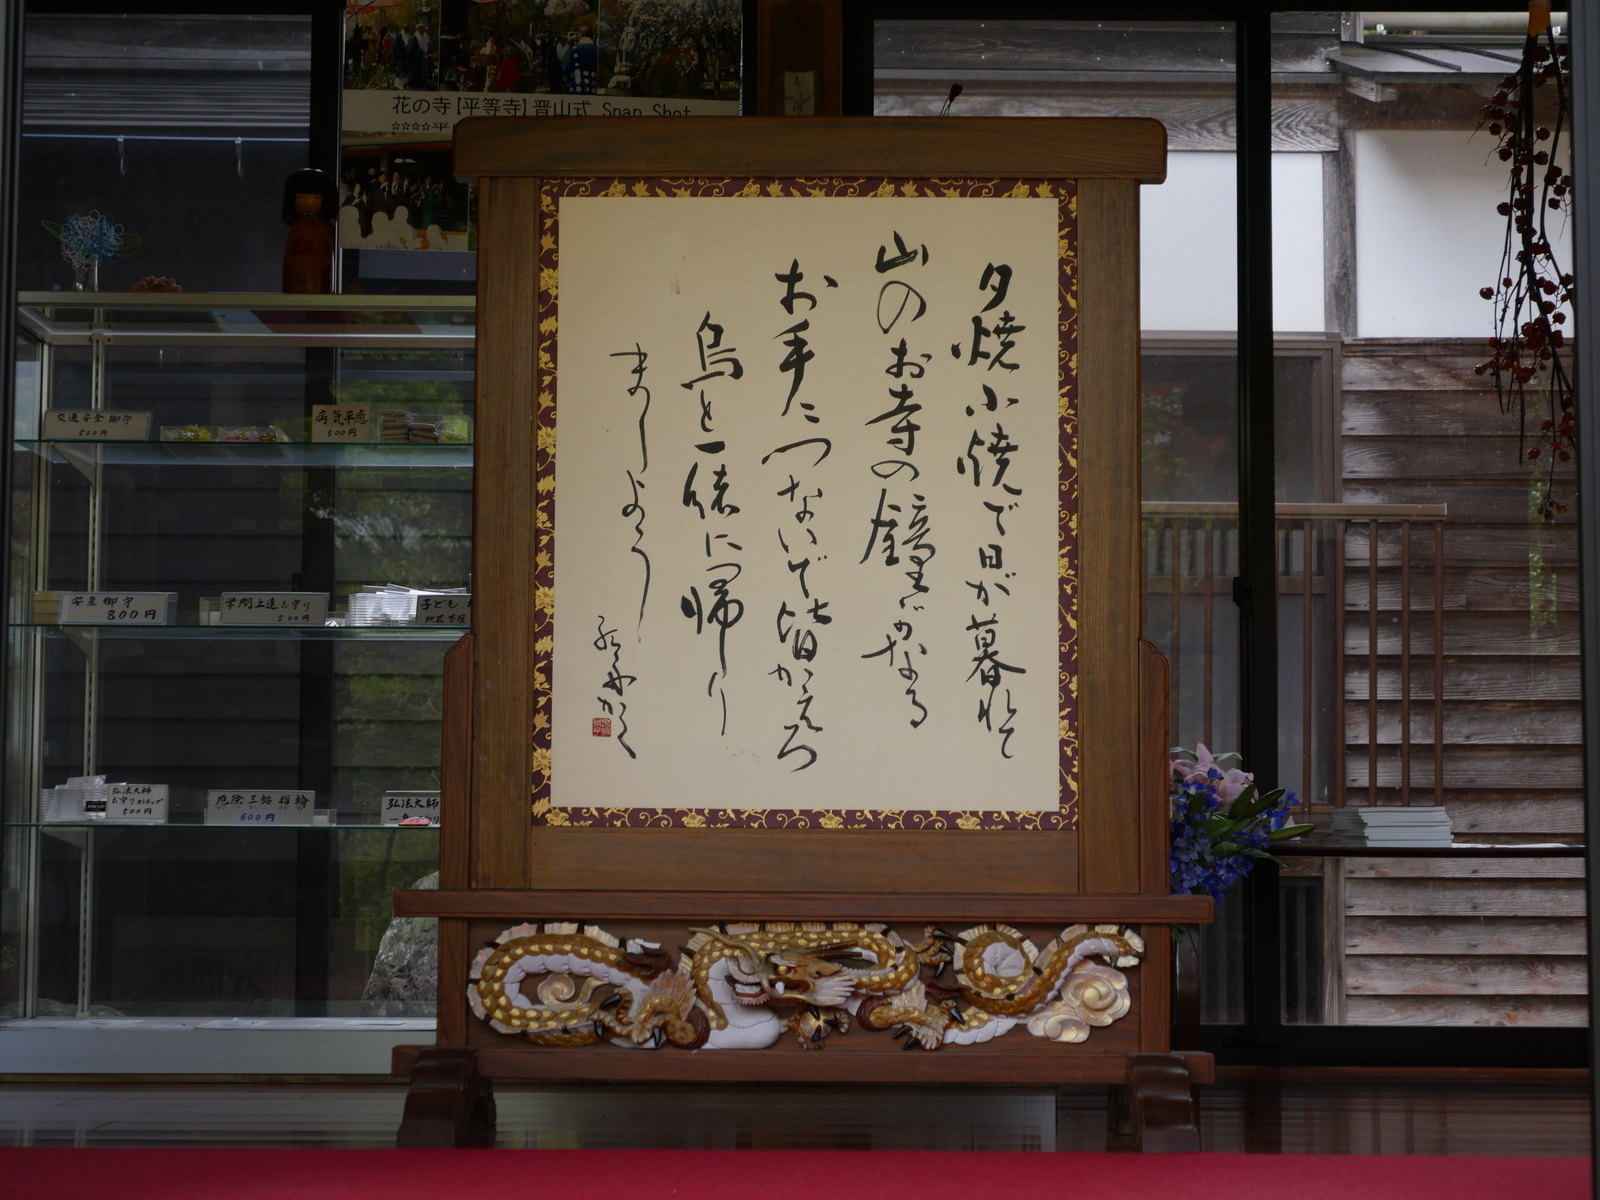 花の寺【平等寺】晋山式 Snap Shot
夕焼小焼で日が暮れて
山のお寺の鐘がなる
お手たつないで皆かえろ
烏と一緒に帰り
ましょう
交通安全御守
500円
病気平癒
500円
安産御守
800円
学問上達お守り
500円
子ども
弘法大師
お守りストラップ
500円
厄除三鈷指輪
600円
弘法大師